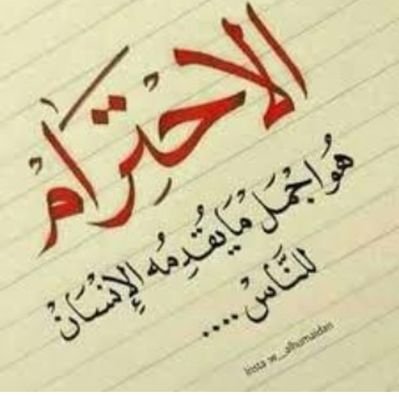 الاحترام
هو اجمل ما يقدمه الإنسان
للناس ....
insta w_alhumaidan